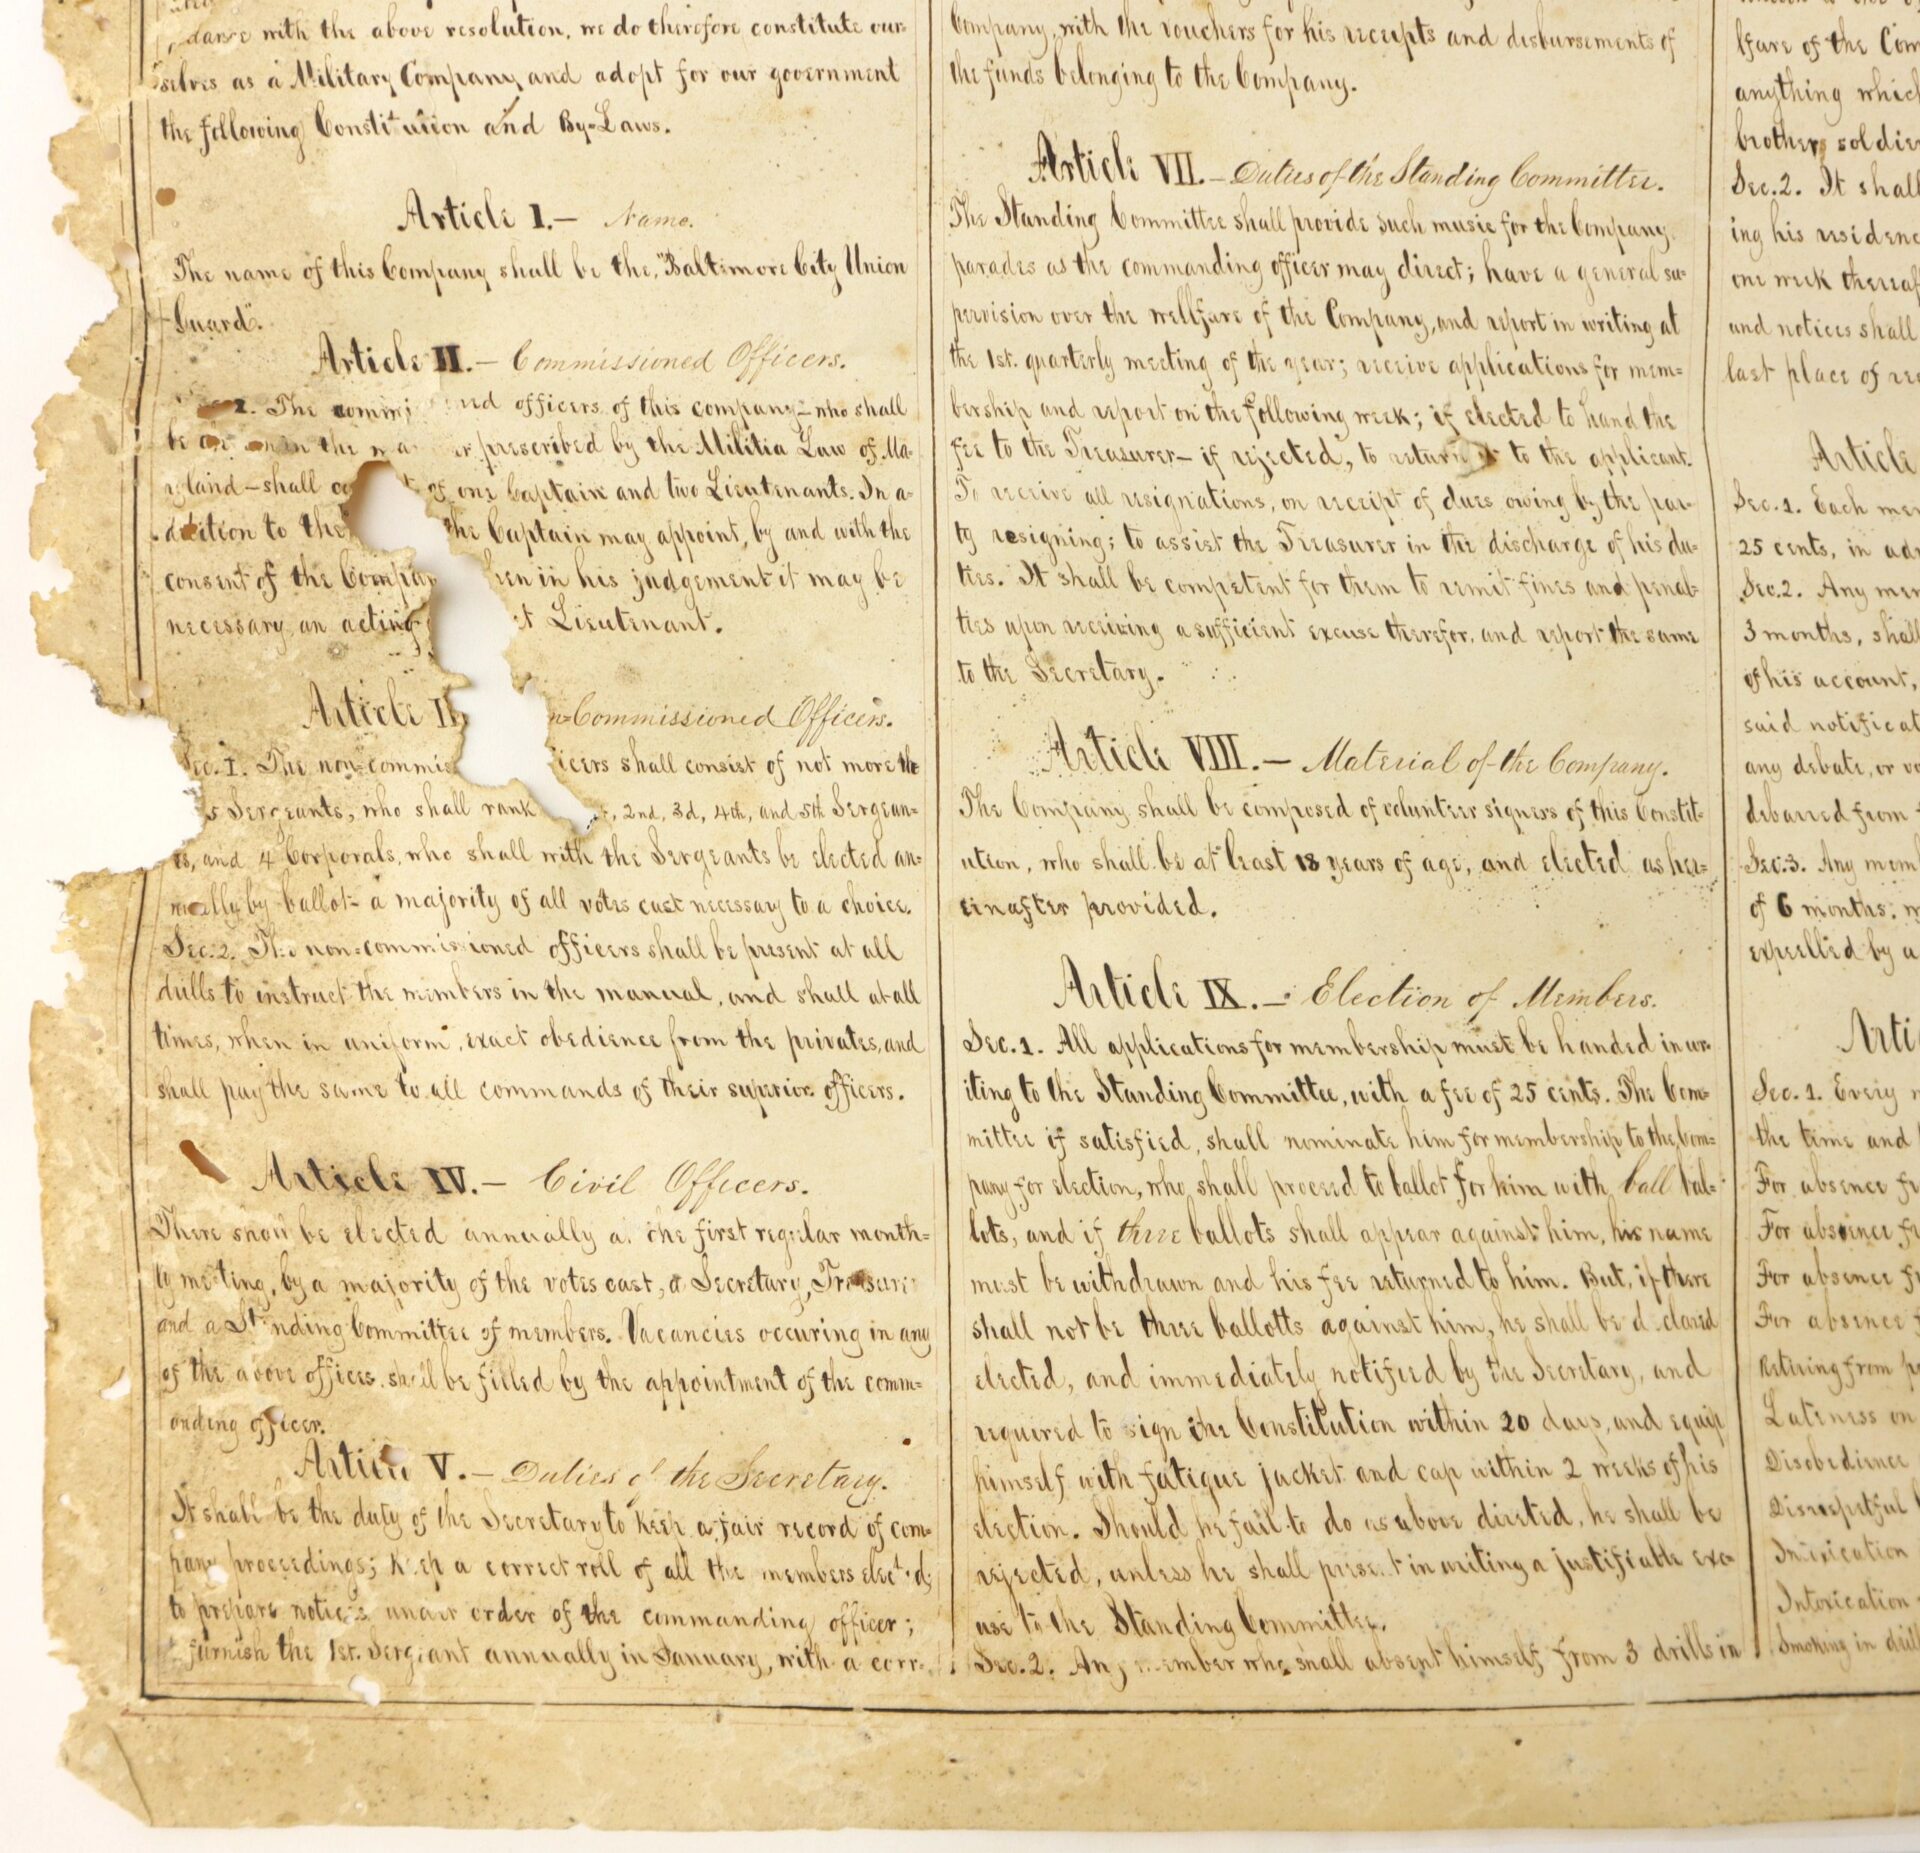 dance with the above resolution, we do therefore constitute our-
selves as a Military Company and adopt for our government
the following Constitution and By-Laws.
Article I.— Name.
The name of this Company shall be the, "Baltimore City Union
Guard".
Article II.— Commissioned Officers.
The officers of this company— who shall
be in the prescribed by the Militia Law of Ma-
ryland—shall of one Captain and two Lieutenants. In a-
ddition to the the Captain may appoint, by and with the
consent of the Company in his judgement it may be
necessary, an acting Lieutenant.
Article Commissioned Officers.
Sec. 1. The non-commis icers shall consist of not more the
5 Sergeants, who shall rank , 2nd, 3d, 4th, and 5th Sergean-
ts, and 4 Corporals, who shall with the Sergeants be elected an-
nually by ballot- a majority of all votes cast necessary to a choice.
Sec. 2. The non-commissioned officers shall be present at all
drills to instruct the members in the manual, and shall at all
times, when in uniform, exact obedience from the privates, and
shall pay the same to all commands of their superior officers.
Article IV.— Civil Officers.
There shall be elected annually at the first regular month-
ly meeting, by a majority of the votes cast, a Secretary, Treasurer
and a Standing Committee of members. Vacancies occuring in any
of the above offices shall be filled by the appointment of the comm-
anding officer.
Article V.— Duties of the Secretary.
It shall be the duty of the Secretary to keep a fair record of com-
pany proceedings; keep a correct roll of all the members elected;
to prepare notices under order of the commanding officer;
furnish the 1st. Sergeant annually in January, with a corr-
Company, with the vouchers for his receipts and disbursements of
the funds belonging to the Company.
Article VII.— Duties of the Standing Committee.
The Standing Committee shall provide such music for the Company
parades as the commanding officer may direct; have a general su-
pervision over the wellfare of the Company, and report in writing at
the 1st. quarterly meeting of the year; receive applications for mem-
bership and report on the following week; if elected to hand the
fee to the Treasurer— if rejected, to return it to the applicant.
To receive all resignations, on receipt of dues owing by the par-
ty resigning; to assist the Treasurer in the discharge of his du-
ties. It shall be competent for them to remit fines and penal-
ties upon receiving a sufficient excuse therefor, and report the same
to the Secretary.
Article VIII.— Material of the Company.
The Company shall be composed of volunteer signers of this Constit-
ution, who shall be at least 18 years of age, and elected as her-
einafter provided.
Article IX.— Election of Members.
Sec. 1. All applications for membership must be handed in wr-
iting to the Standing Committee, with a fee of 25 cents. The Com-
mittee if satisfied, shall nominate him for membership to the Com-
pany for election, who shall proceed to ballot for him with ball bal-
lots, and if three ballots shall appear against him, his name
must be withdrawn and his fee returned to him. But, if there
shall not be three ballotts against him, he shall be declared
elected, and immediately notified by the Secretary, and
required to sign the Constitution within 20 days, and equip
himself with fatigue jacket and cap within 2 weeks of his
election. Should he fail to do as above directed, he shall be
rejected, unless he shall present in writing a justifiable exc-
use to the Standing Committee.
Sec. 2. Any member who shall absent himself from 3 drills in
lfare of the Com
anything which
brother soldier
Sec. 2. It shall
ing his residenc
one week thereaf
and notices shall
last place of res
Article
Sec. 1. Each mem
25 cents, in adv
Sec. 2. Any mem
3 months, shall
of his account,
said notificat
any debate, or vo
debarred from
Sec. 3. Any memb
of 6 months,
expelled by a
Arti
Sec. 1. Every
the time and
For absence fr
For absence fr
For absence fr
For absence f
Retiring from p
Lateness on
Disobedience
Disrespectful
Intoxication
Intoxication
Smoking in drill